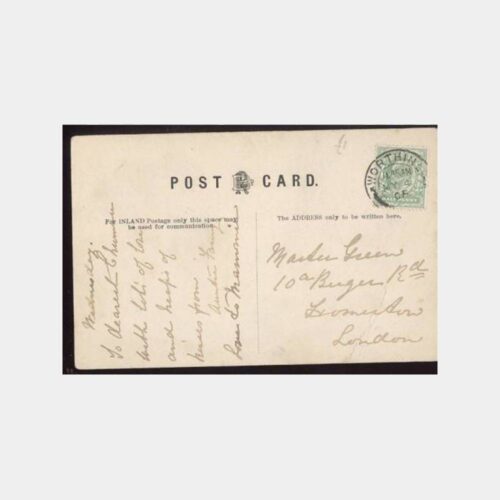 POST CARD.
For INLAND Postage only this space may
be used for communication.
The ADDRESS only to be written here.
WORTHING
Wednesday.
To dearest
with lots of love
and heaps of
kisses from Auntie
Love to Mammie
Master Green
10a Rd
London